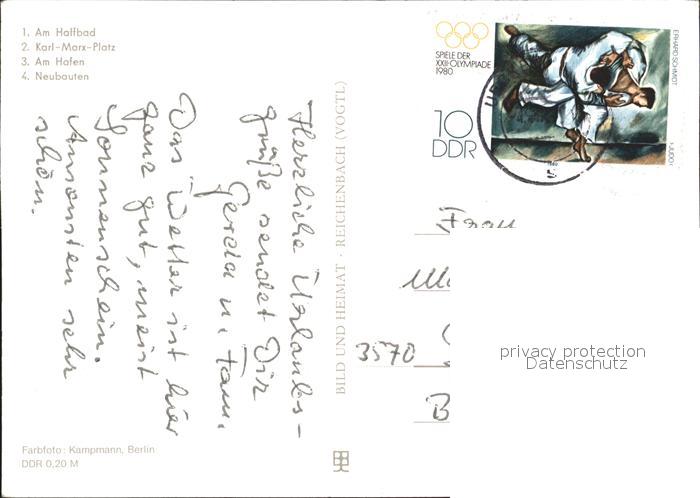 1. Am Haffbad
2. Karl-Marx-Platz
3. Am Hafen
4. Neubauten
SPIELE DER
XXII. OLYMPIADE
1980
10
DDR
ERHARD SCHMIDT
Herzliche Urlaubs-
grüße sendet Dir
Gerda u. Fam.
Das Wetter ist hier
ganz gut, meist
Sonnenschein.
Ansonsten sehr
schön.
BILD UND HEIMAT · REICHENBACH (VOGTL)
Frau
3570
B
privacy protection
Datenschutz
Farbfoto: Kampmann, Berlin
DDR 0,20 M